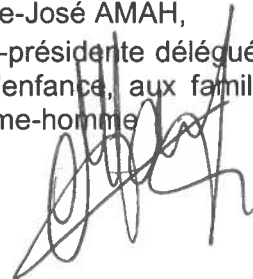 e-José AMAH,
-présidente délégué
'enfance, aux famil
me-homme